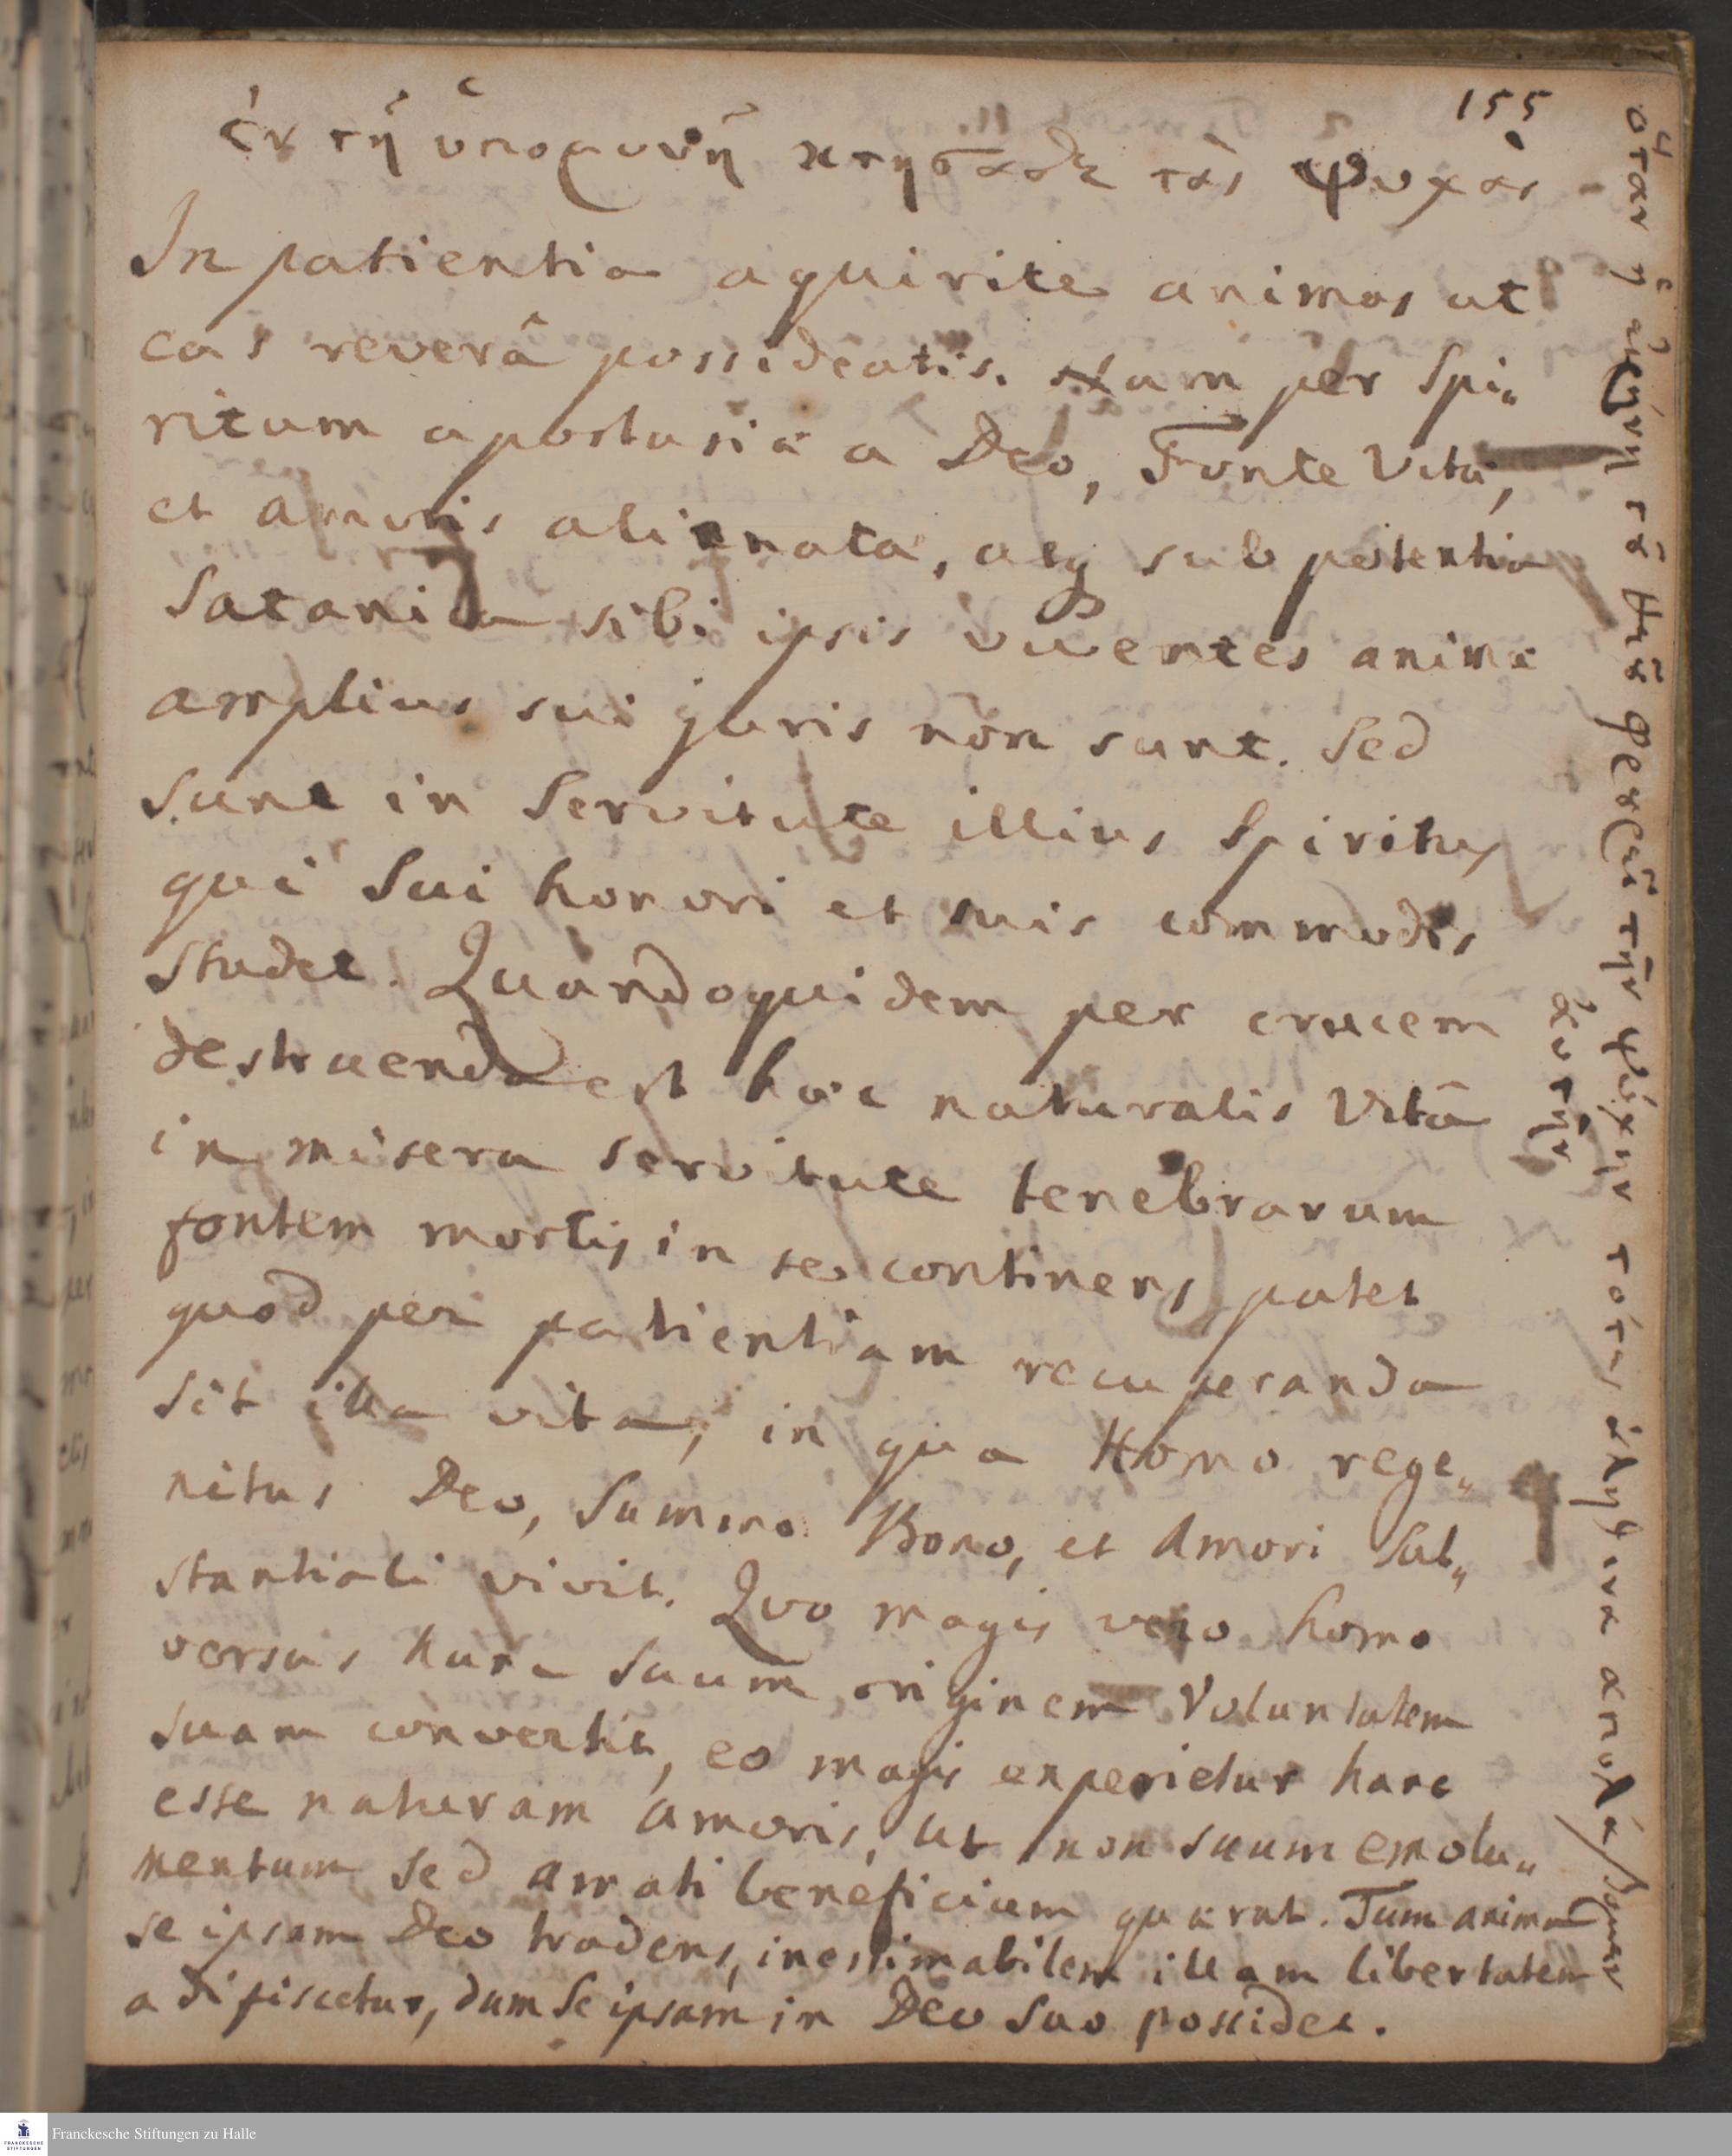 155
ἐν τῇ ὑπομονῇ κτησασθε τὰς ψυχὰς
In patientia aquirite animas ut
eas reverâ possideatis. Nam per Spi„
ritum apostasiæ a Deo, Fonte Vitæ,
et amoris alienatæ, atq sub potentia
Satanica sibi ipsis viventes animæ
amplius sui juris non sunt. Sed
sunt in Servitute illius Spiritus
qui Sui honori et suis commodis
studet. Quandoquidem per crucem
destruenda est hæc naturalis Vita
in misera servitute tenebrarum
fontem mortis in se continens, patet
quod per patientiam recuperanda
sit illa vita, in qua Homo rege„
nitus Deo, Summo Bono, et Amori Sub„
stantiali vivit. Quo magis vero homo
versus hunc suum originem Voluntatem
suam convertit, eo magis experietur hanc
esse naturam amoris, ut non suum emolu„
mentum sed amati beneficium quærat. Tum anima
se ipsam Deo tradens, inestimabilem illam libertatem
adipiscetur, dum se ipsam in Deo suo possidet.
ὅταν ἡ τὴν ψύχην
ἀυτὴν
Franckesche Stiftungen zu Halle